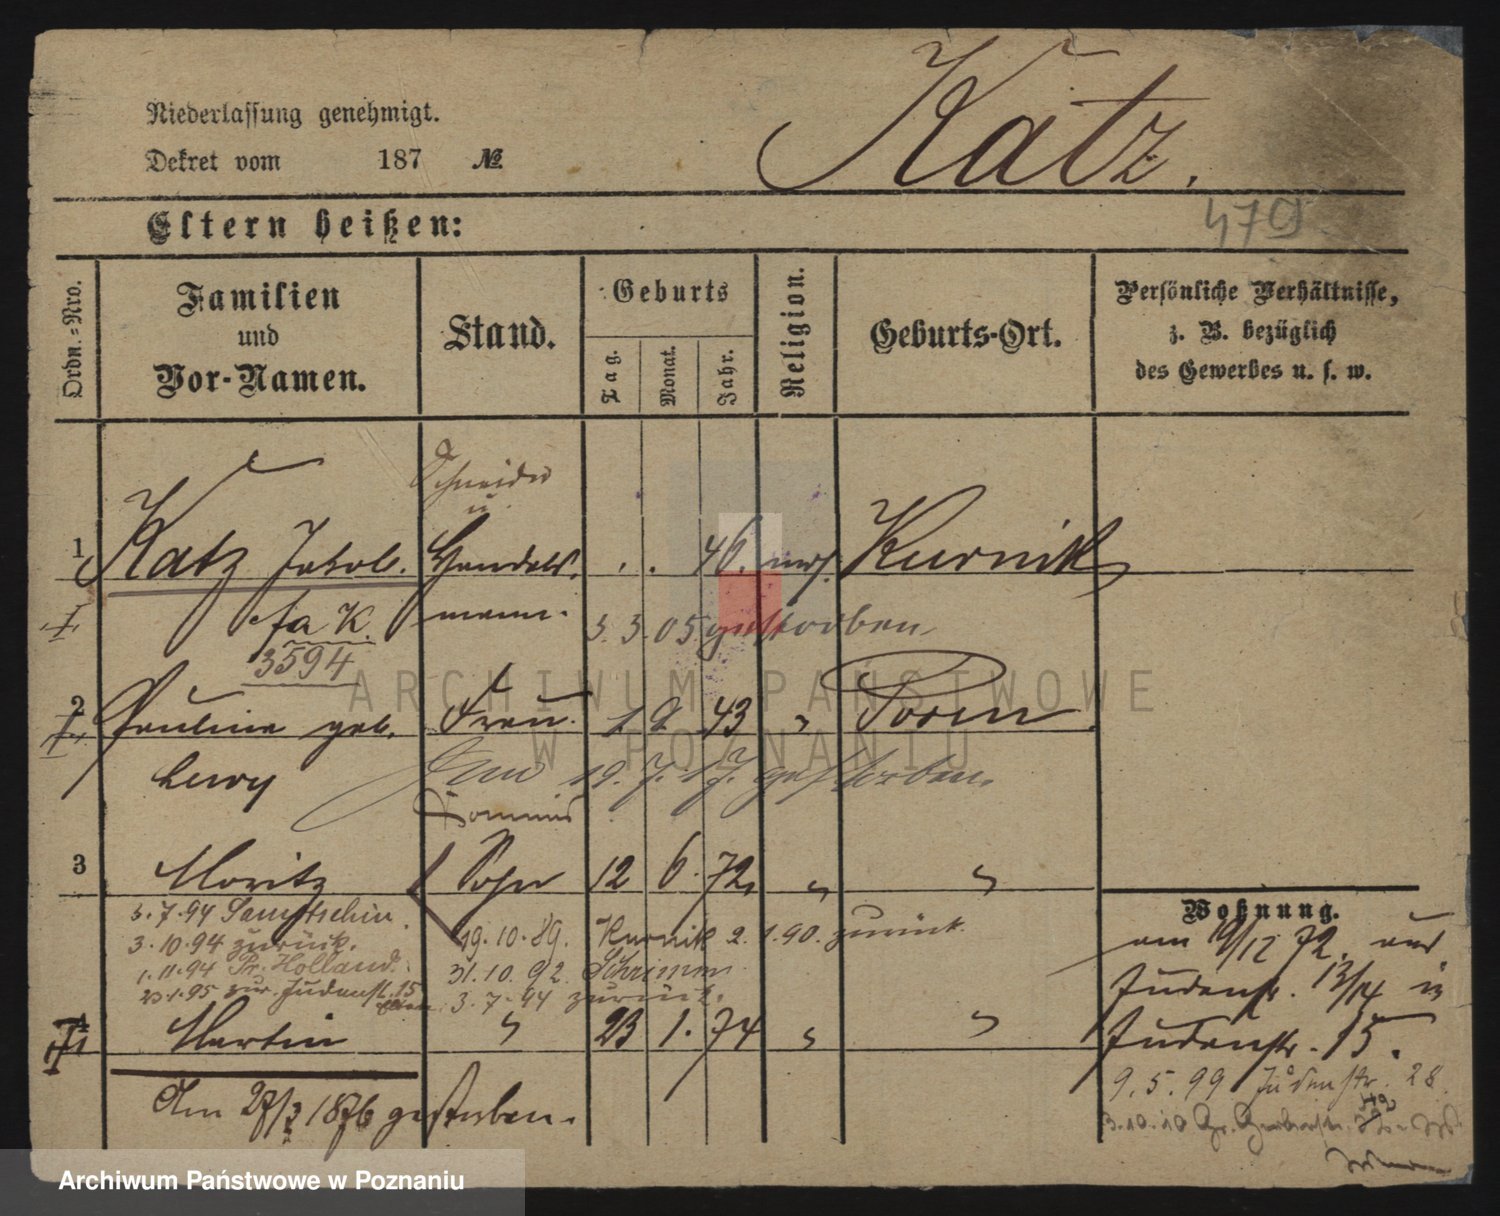 Niederlassung genehmigt.
Dekret vom 187 №
Katz.
Eltern heißen:
479
Ordn.=Nro.
Familien
und
Vor-Namen.
Stand.
Geburts
Tag.
Monat.
Jahr.
Religion.
Geburts-Ort.
Persönliche Verhältnisse,
z. B. bezüglich
des Gewerbes u. s. w.
Schneider
u.
1 Katz Jakob. Handels- . . 46. mos. Kurnik
mann.
fa K. 3. 3. 05 gestorben
3594
ARCHIWUM PAŃSTWOWE
W POZNANIU
2 Pauline geb. Frau. 1 2 43 " Posen.
Lewy
Am 19. 7. 17. gestorben.
Commis
3 Moritz Sohn 12 6. 72. " "
3.7.94 Samptschin.
3.10.94 zurück.
1.11.94 Pr. Holland.
23.1.95 zur. Judenstr. 15
19.10.89. Kurnik 2. 1.90. zurück.
31.10.92 Schrimm
3.7.94 zurück.
4 Martin " 23 1. 74 " "
Am 27/3 1876 gestorben.
Wohnung.
am 19/12 72. aus
Judenstr. 13/14 in
Judenstr. 15.
9.5.99 Judenstr. 28
3.10.10 Gr. Gerberstr.
Archiwum Państwowe w Poznaniu